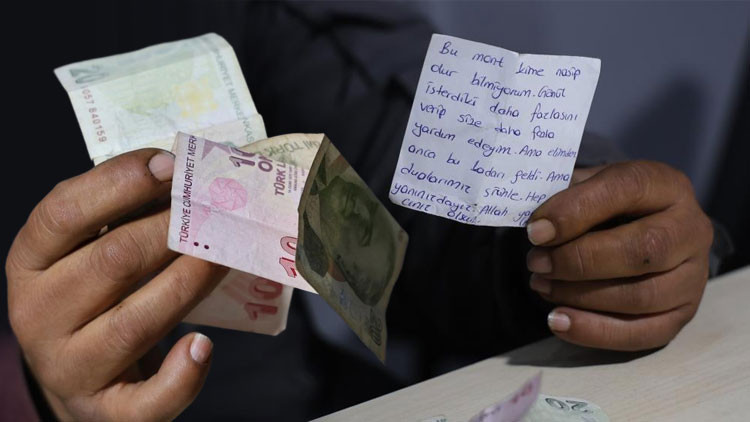 20
057 840159
TÜRKİYE CUMHURİYET MERK
10
TÜRK L
10
10
Bu mont kime nasip
olur bilmiyorum. Gönül
isterdiki daha fazlasını
verip size daha fazla
yardım edeyim. Ama elimden
anca bu kadarı geldi. Ama
dualarımız sizinle. Hep
yanınızdayız. Allah ya
ciniz olsun.
20